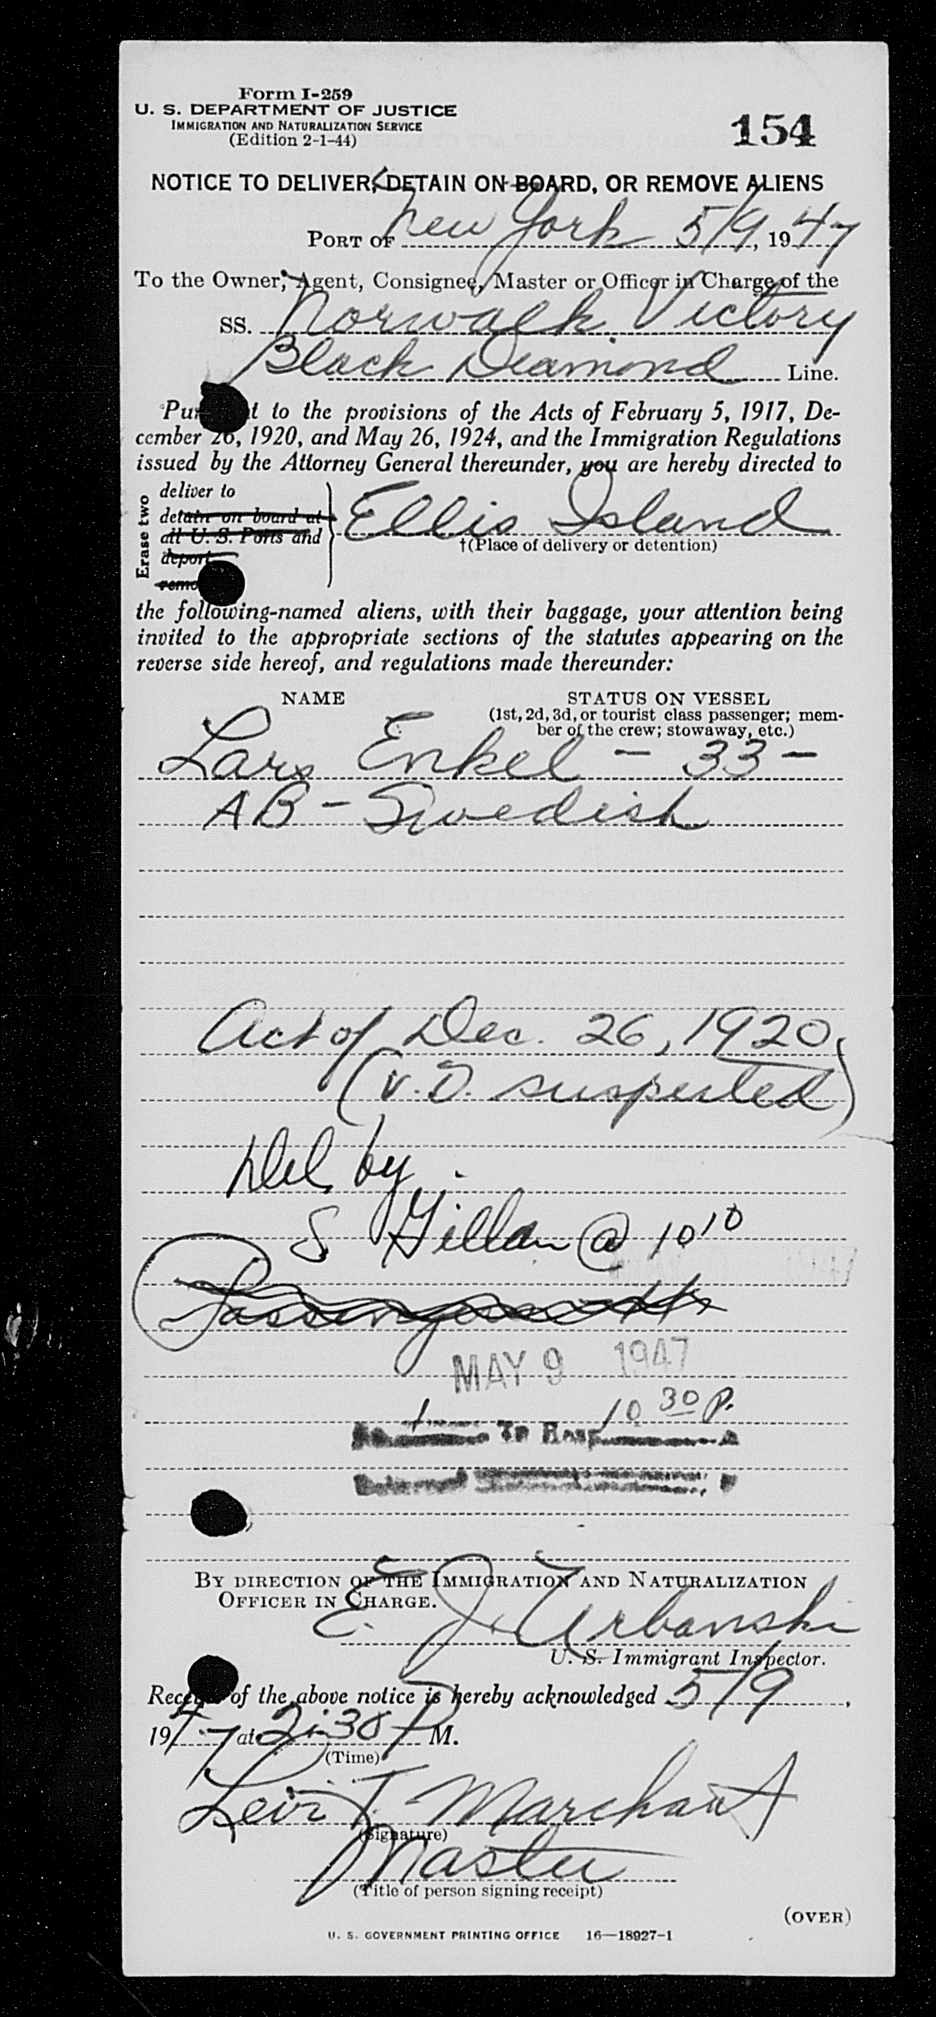 Form I-259
U. S. DEPARTMENT OF JUSTICE
IMMIGRATION AND NATURALIZATION SERVICE
(Edition 2-1-44)
154
NOTICE TO DELIVER, DETAIN ON BOARD, OR REMOVE ALIENS
PORT OF New York 5/9, 1947
To the Owner, Agent, Consignee, Master or Officer in Charge of the
SS. Norwalk Victory
Black Diamond Line.
t to the provisions of the Acts of February 5, 1917, De-
cember 26, 1920, and May 26, 1924, and the Immigration Regulations
issued by the Attorney General thereunder, you are hereby directed to
Erase two
deliver to
detain on board at
all U. S. Ports and
deport
remo
Ellis Island
†(Place of delivery or detention)
the following-named aliens, with their baggage, your attention being
invited to the appropriate sections of the statutes appearing on the
reverse side hereof, and regulations made thereunder:
NAME STATUS ON VESSEL
(1st, 2d, 3d, or tourist class passenger; mem-
ber of the crew; stowaway, etc.)
Lars Enkel - 33 -
AB - Swedish
Act of Dec. 26, 1920,
(V.D. suspected)
Del. by
S Gillan @ 10 10
MAY 9 1947
1 10 30 P.
To Hosp
BY DIRECTION OF THE IMMIGRATION AND NATURALIZATION
OFFICER IN CHARGE.
E. J. Urbanski
U. S. Immigrant Inspector.
of the above notice is hereby acknowledged 5/9,
1947 at 2:30 P M.
(Time)
Levi T. Marchant
(Signature)
Master
(Title of person signing receipt)
(OVER)
U. S. GOVERNMENT PRINTING OFFICE 16—18927-1